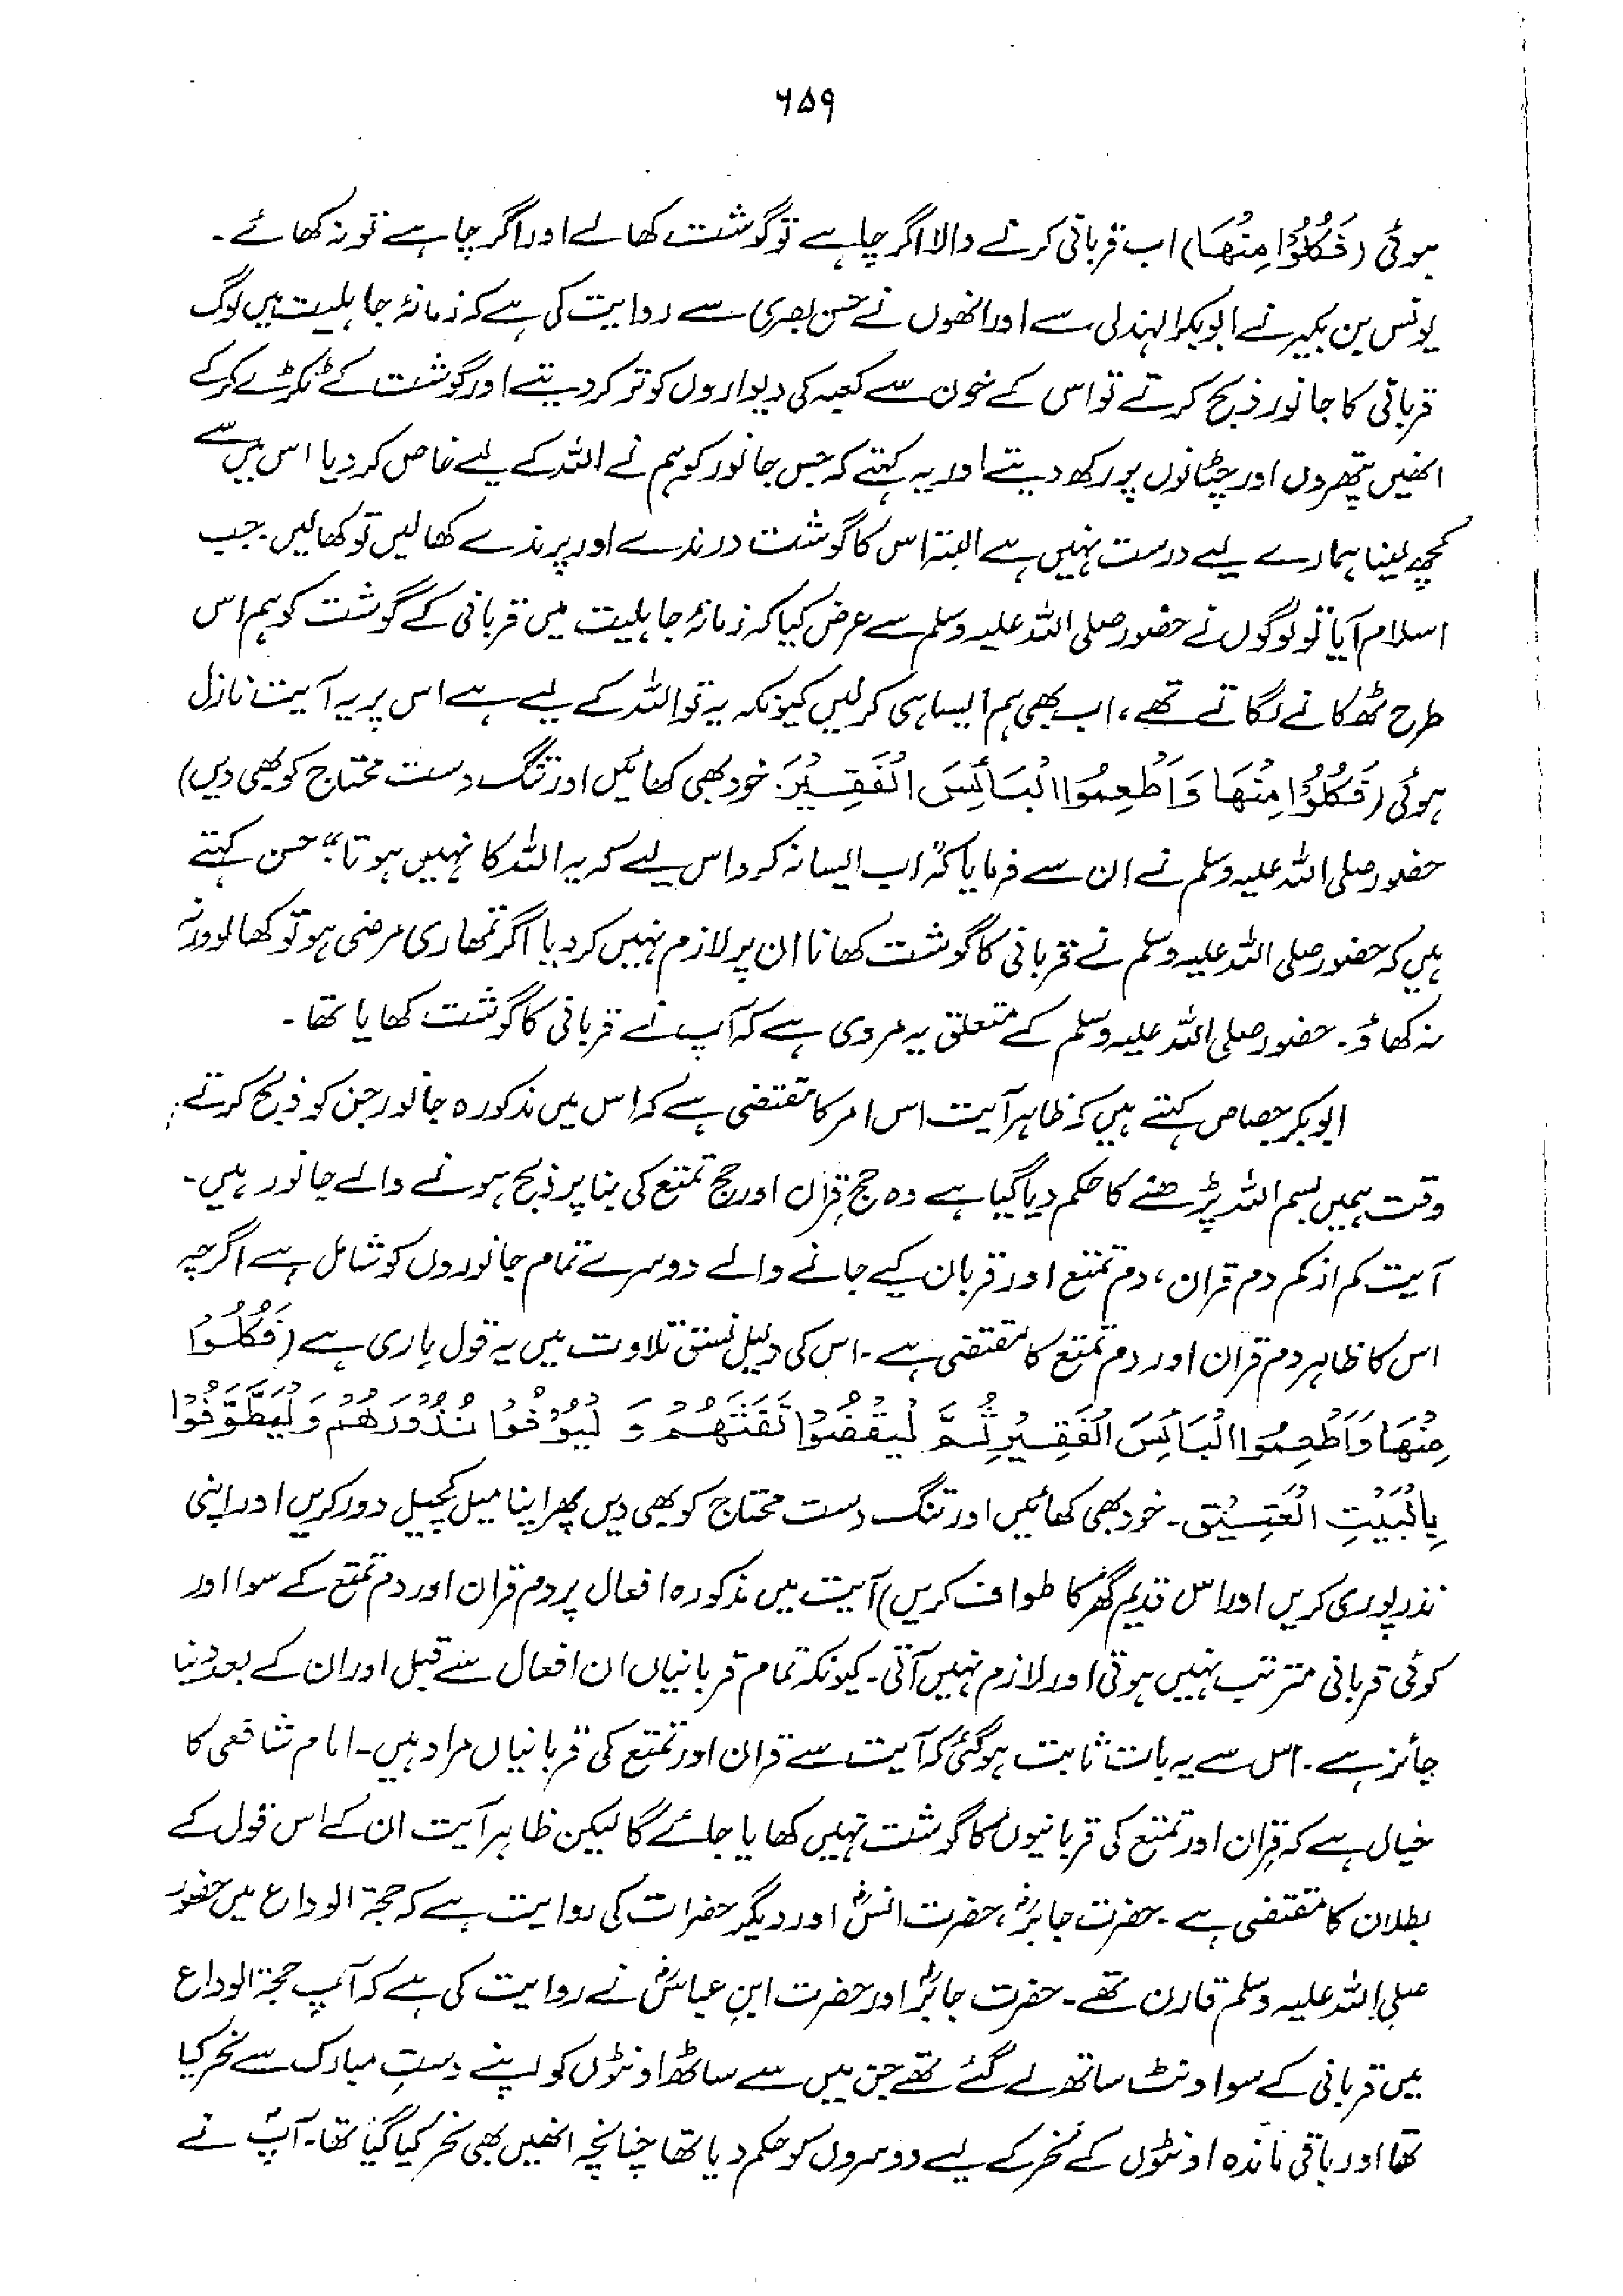 ۶۵۹
ہوئی (فَكُلُوْا مِنْهَا) اب قربانی کرنے والا اگر چاہے تو گوشت کھالے اور اگر چاہے تو نہ کھائے۔
یونس بن بکیر نے ابوبکر الہندلی سے اور انھوں نے حسن بصری سے روایت کی ہے کہ زمانۂ جاہلیت میں لوگ
قربانی کا جانور ذبح کرتے تو اس کے خون سے کعبہ کی دیواروں کو تر کر دیتے اور گوشت کے ٹکڑے کرکے
انھیں پتھروں اور چٹانوں پور رکھ دیتے اور یہ کہتے کہ جس جانور کو ہم نے اللہ کے لیے خاص کر دیا اس میں سے
کچھ لینا ہمارے لیے درست نہیں ہے البتہ اس کا گوشت درندے اور پرندے کھالیں تو کھالیں۔ جب
اسلام آیا تو لوگوں نے حضور صلی اللہ علیہ وسلم سے عرض کیا کہ زمانۂ جاہلیت میں قربانی کے گوشت کو ہم اس
طرح ٹھکانے لگاتے تھے، اب بھی ہم ایسا ہی کرلیں کیونکہ یہ تو اللہ کے لیے ہے اس پر یہ آیت نازل
ہوئی (فَكُلُوْا مِنْهَا وَاَطْعِمُوا الْبَائِسَ الْفَقِيْرَ۔ خود بھی کھائیں اور تنگ دست محتاج کو بھی دیں)
حضور صلی اللہ علیہ وسلم نے ان سے فرمایا کہ "اب ایسا نہ کرو اس لیے کہ یہ اللہ کا نہیں ہوتا" حسن کہتے
ہیں کہ حضور صلی اللہ علیہ وسلم نے قربانی کا گوشت کھانا ان پر لازم نہیں کر دیا اگر تمھاری مرضی ہو تو کھالو ورنہ
نہ کھاؤ۔ حضور صلی اللہ علیہ وسلم کے متعلق یہ مروی ہے کہ آپ نے قربانی کا گوشت کھایا تھا۔
ابوبکر جصاص کہتے ہیں کہ ظاہر آیت اس امر کا مقتضی ہے کہ اس میں مذکورہ جانور جن کو ذبح کرتے
وقت ہمیں بسم اللہ پڑھنے کا حکم دیا گیا ہے وہ حج قِران اور حج تمتع کی بنا پر ذبح ہونے والے جانور ہیں۔
آیت کم از کم دم قران، دم تمتع اور قربان کیے جانے والے دوسرے تمام جانوروں کو شامل ہے اگرچہ
اس کا ظاہر دم قران اور دم تمتع کا مقتضی ہے۔ اس کی دلیل نسق تلاوت میں یہ قول باری ہے (فَكُلُوْا
مِنْهَا وَاَطْعِمُوا الْبَائِسَ الْفَقِيْرِ ثُمَّ لْيَقْضُوْا تَفَثَهُمْ وَ لْيُوْفُوْا نُذُوْرَهُمْ وَلْيَطَّوَّفُوْا
بِالْبَيْتِ الْعَتِيْقِ۔ خود بھی کھائیں اور تنگ دست محتاج کو بھی دیں پھر اپنا میل کچیل دور کریں اور اپنی
نذر پوری کریں اور اس قدیم گھر کا طواف کریں) آیت میں مذکورہ افعال پر دم قران اور دم تمتع کے سوا اور
کوئی قربانی مترتب نہیں ہوتی اور لازم نہیں آتی۔ کیونکہ تمام قربانیاں ان افعال سے قبل اور ان کے بعد دینا
جائز ہے۔ اس سے یہ بات ثابت ہوگئی کہ آیت سے قران اور تمتع کی قربانیاں مراد ہیں۔ امام شافعی کا
خیال ہے کہ قِران اور تمتع کی قربانیوں کا گوشت نہیں کھایا جائے گا لیکن ظاہر آیت ان کے اس قول کے
بطلان کا مقتضی ہے۔ حضرت جابرؓ، حضرت انسؓ اور دیگر حضرات کی روایت ہے کہ حجۃ الوداع میں حضور
صلی اللہ علیہ وسلم قارن تھے۔ حضرت جابرؓ اور حضرت ابن عباسؓ نے روایت کی ہے کہ آپ حجۃ الوداع
میں قربانی کے سو اونٹ ساتھ لے گئے تھے جن میں سے ساٹھ اونٹوں کو اپنے دستِ مبارک سے نحر کیا
تھا اور باقی ماندہ اونٹوں کے نحر کے لیے دوسروں کو حکم دیا تھا چنانچہ انھیں بھی نحر کیا گیا تھا۔ آپؐ نے